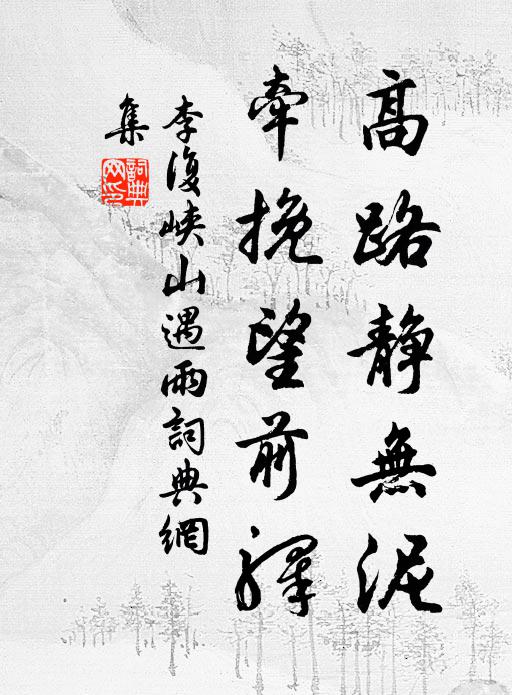 高路静無泥
牽挽望前驛
李復峡山遇雨詞典網
集
詞典網